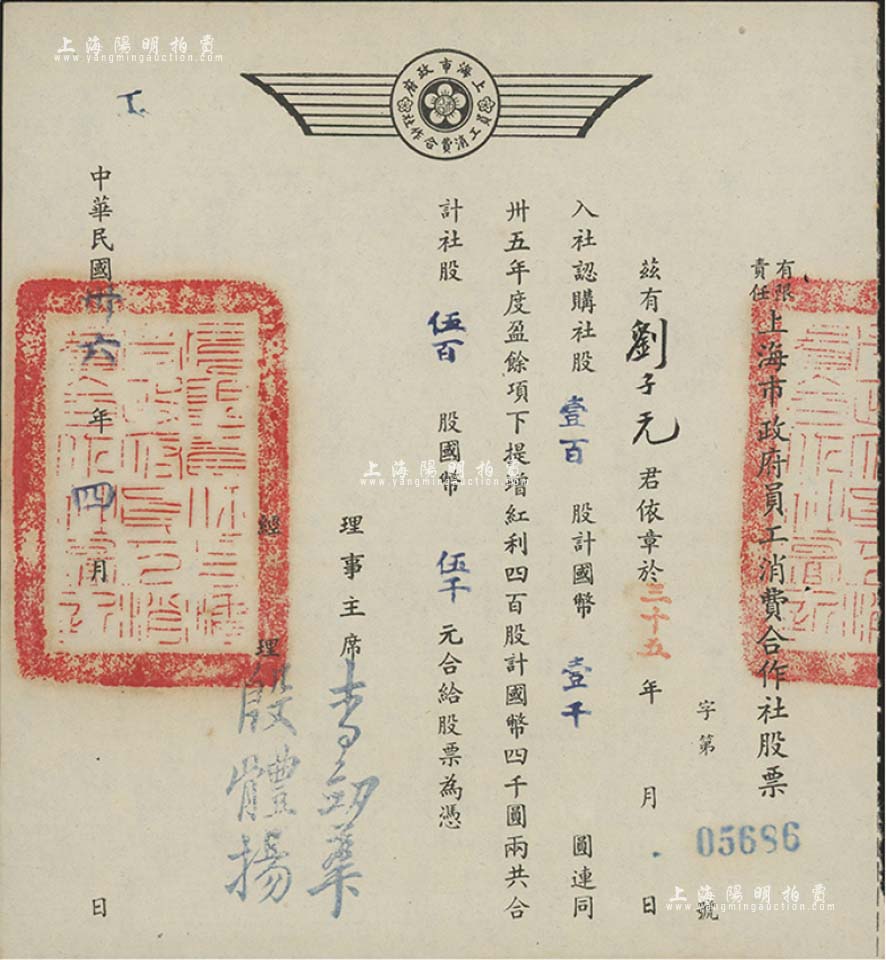 上海陽明拍賣
www.yangmingauction.com
上海市政府
員工消費合作社
有限責任上海市政府員工消費合作社股票
字第05686號
茲有劉子元君依章於三十五年 月 日
入社認購社股壹百股計國幣壹千圓連同
卅五年度盈餘項下提增紅利四百股計國幣四千圓兩共合
計社股伍百股國幣伍千元合給股票為憑
理事主席
經理 殷體揚
中華民國卅六年四月 日
上海陽明拍賣
www.yangmingauction.com
上海陽明拍賣
www.yangmingauction.com